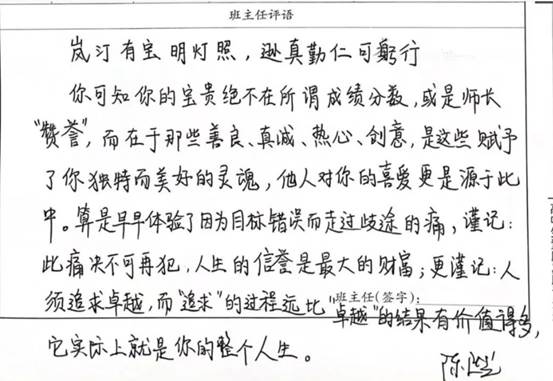 班主任评语
岚汀有宝明灯照，逊真勤仁可躬行
你可知你的宝贵绝不在所谓成绩分数，或是师长
“赞誉”，而在于那些善良、真诚、热心、创意，是这些赋予
了你独特而美好的灵魂，他人对你的喜爱更是源于此
中。算是早早体验了因为目标错误而走过歧途的痛，谨记：
此痛决不可再犯，人生的信誉是最大的财富；更谨记：人
须追求卓越，而“追求”的过程远比“卓越”的结果有价值得多，
班主任(签字)：
它实际上就是你的整个人生。
陈